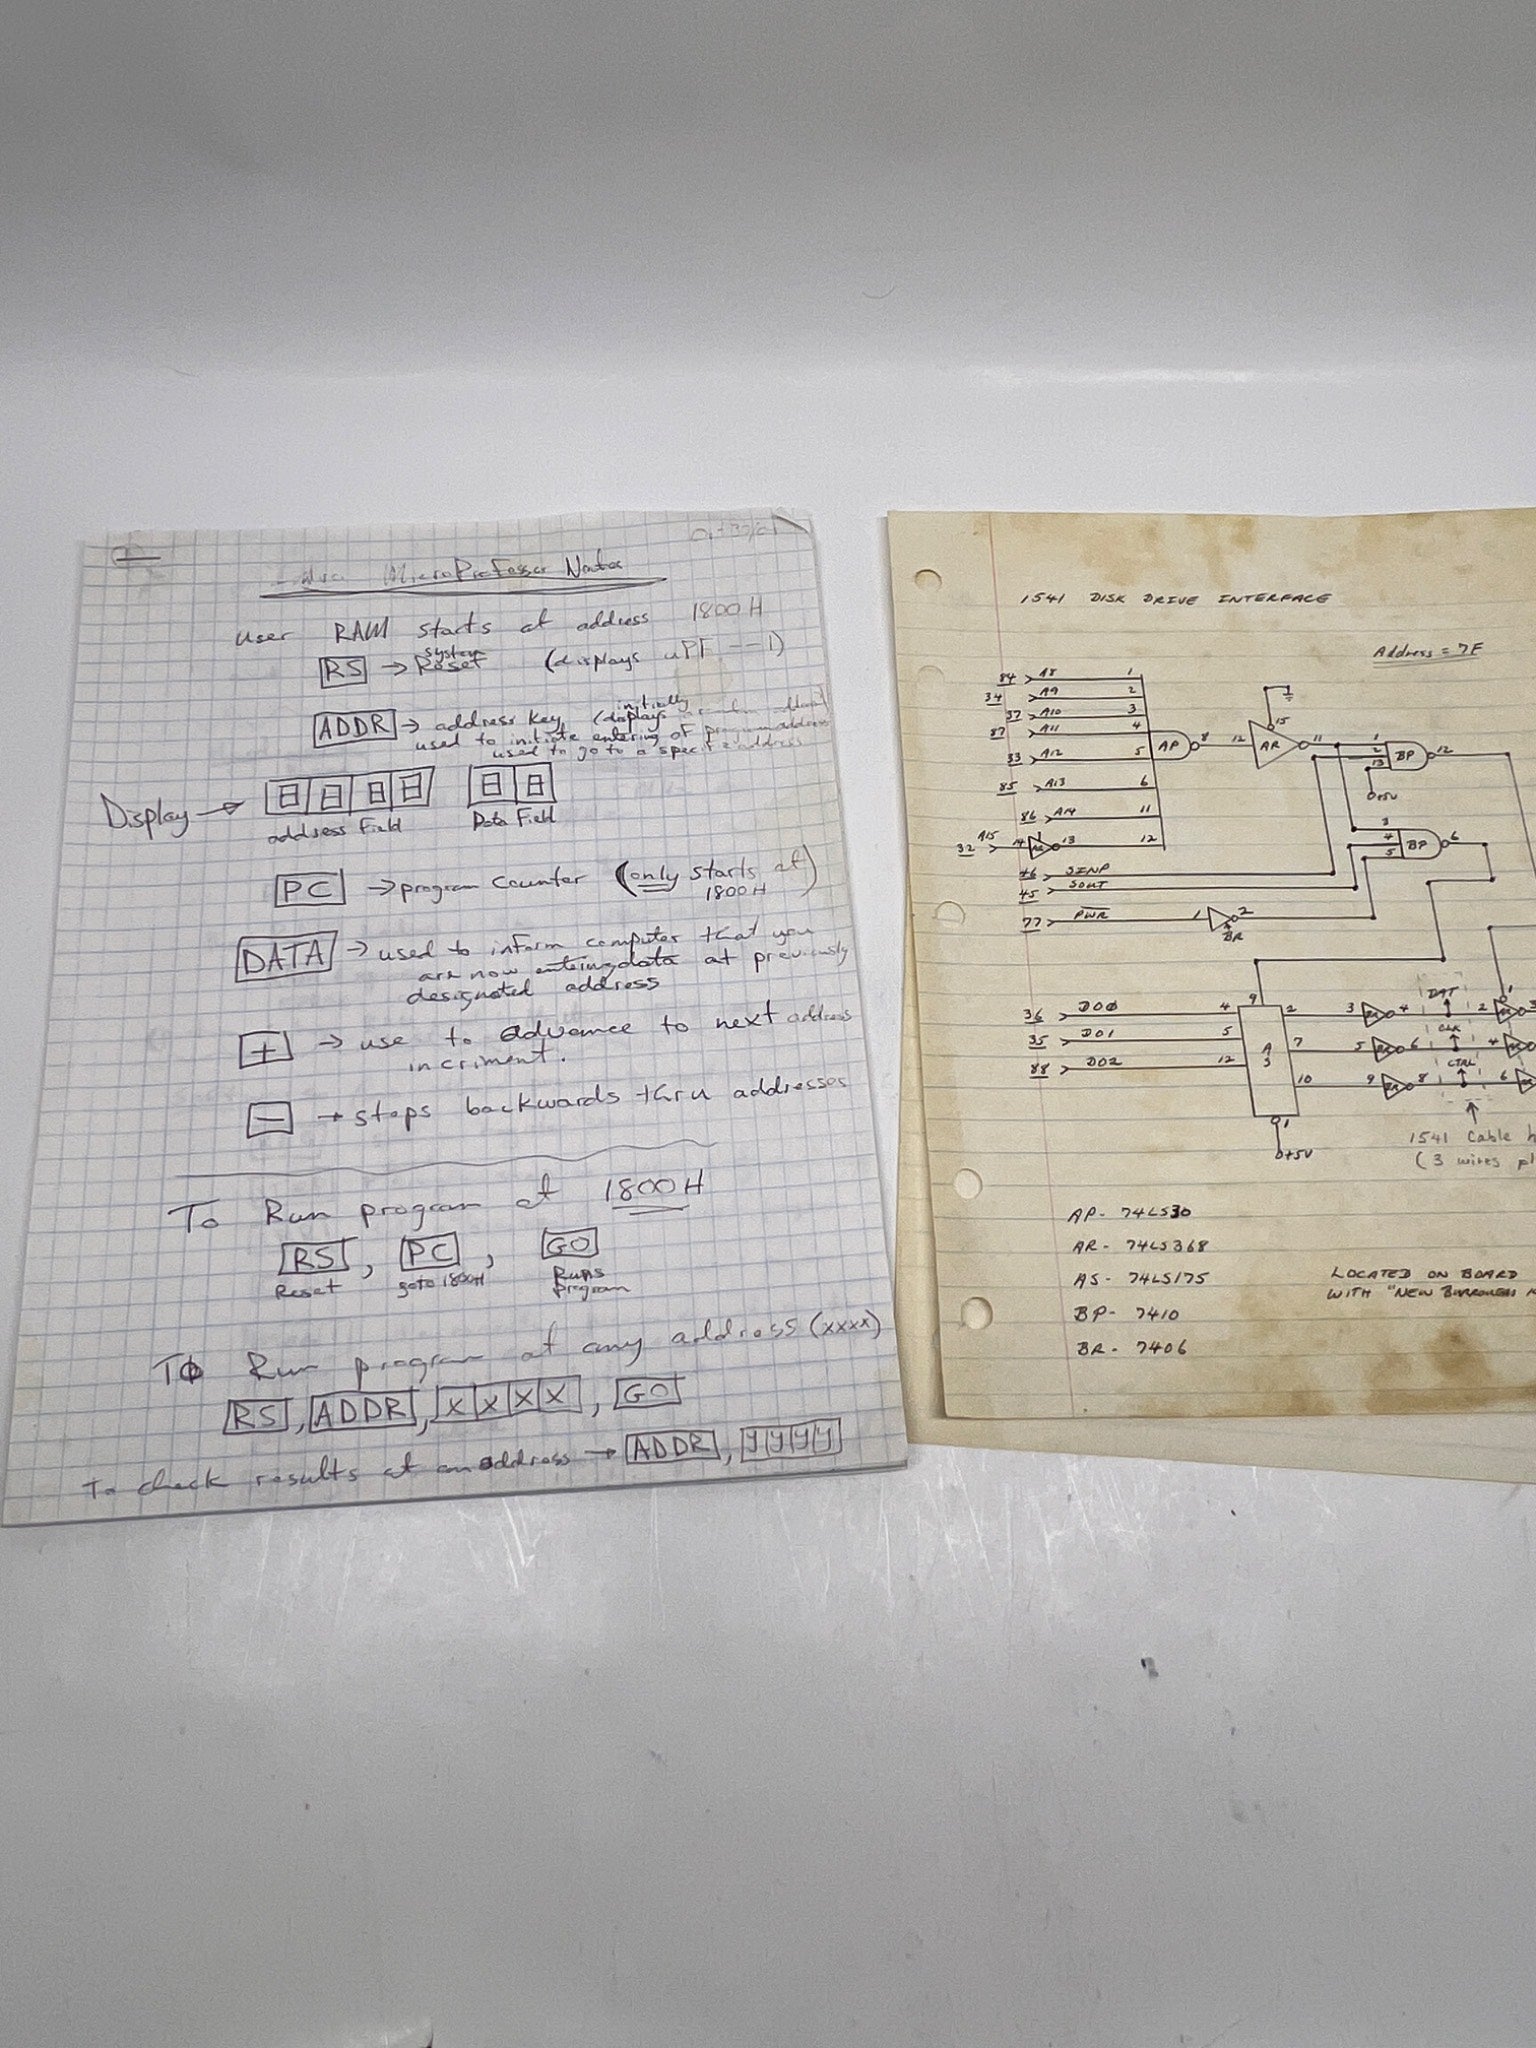 MicroProfessor Notes
user RAM starts at address 1800H
RS → system Reset (displays uPF --1)
ADDR → address key, (displays initially a random address)
used to initiate entering of program address
used to go to a specific address
Display →
address Field Data Field
PC → program counter (only starts at
1800H)
DATA → used to inform computer that you
are now entering data at previously
designated address
+ → use to advance to next address
incriment.
− → steps backwards thru addresses
To Run program at 1800H
RS, PC, GO
Reset goto 1800H Runs
program
TO Run program at any address (xxxx)
RS, ADDR, X X X X, GO
To check results at an address → ADDR, y y y y
1541 DISK DRIVE INTERFACE
Address = 7F
84 A8 1
34 A9 2
37 A10 3
87 A11 4
33 A12 5
85 A13 6
86 A14 11
32 A15 14 13 12
AP 8 12 AR 15 11
1 2 13 BP 12
+5V
3 4 5 BP 6
46 SINP
45 SOUT
77 PWR 1 2
BR
9
36 DO0 4 2 3 4 DAT 2 3
35 DO1 5 7 5 6 CLK 4
88 DO2 12 10 9 8 CTRL 6
1
+5V
1541 Cable
(3 wires
AP- 74LS30
AR- 74LS368
AS- 74LS175
BP- 7410
BR- 7406
LOCATED ON BOARD
WITH "NEW BURROUGHS